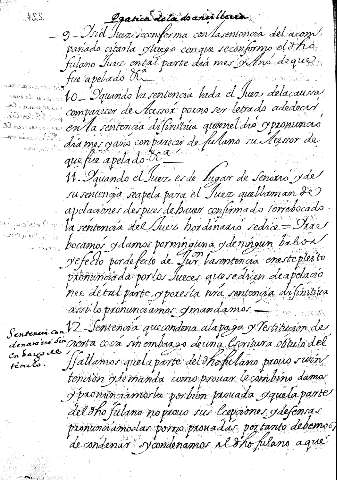 Pratica de la
9 Y si el Juez se conforma con la sentencia del acom
pañado citarla y luego con que se conformo el dho
fulano Juez en tal parte dia mes y Año de que
fue apelado &ra
10 Y quando la sentencia la da el Juez de la causa
con parecer de Acessor por no ser letrado a de decir
en la sentencia difinitiva que en el dio y pronuncio
dia mes y año con parecer de fulano su Acessor de
que fue apelado &ra
11 Y quando el Juez es de lugar de Senorio y de
su sentencia se apela para el Juez que llaman de
apelaciones despues de haver confirmado o rebocado
la sentencia del Juez hordenario se dira =
bocamos y damos por ninguna y de ningun balor
y efecto por defeto de Jurn la sentencia en este pleito
pronunciada por los Jueces que se dicen de apelacio
nes de tal parte y por esta nra sentencia difinitiva
assi lo pronunciamos y mandamos
Sentencia con
denatoria sin
embargo de
12 Sentencia que condena a la paga y restitucion de
cierta cosa sin embargo de una Escritura
fallamos que la parte del dho fulano provo su in
tencion y demanda como provar le combino damos
y pronunciamosla por bien provada y que la parte
del dho fulano no provo sus Excepciones y defensas
pronunciamoslas por no provadas por tanto debemos
de condenar y condenamos al dho fulano a que